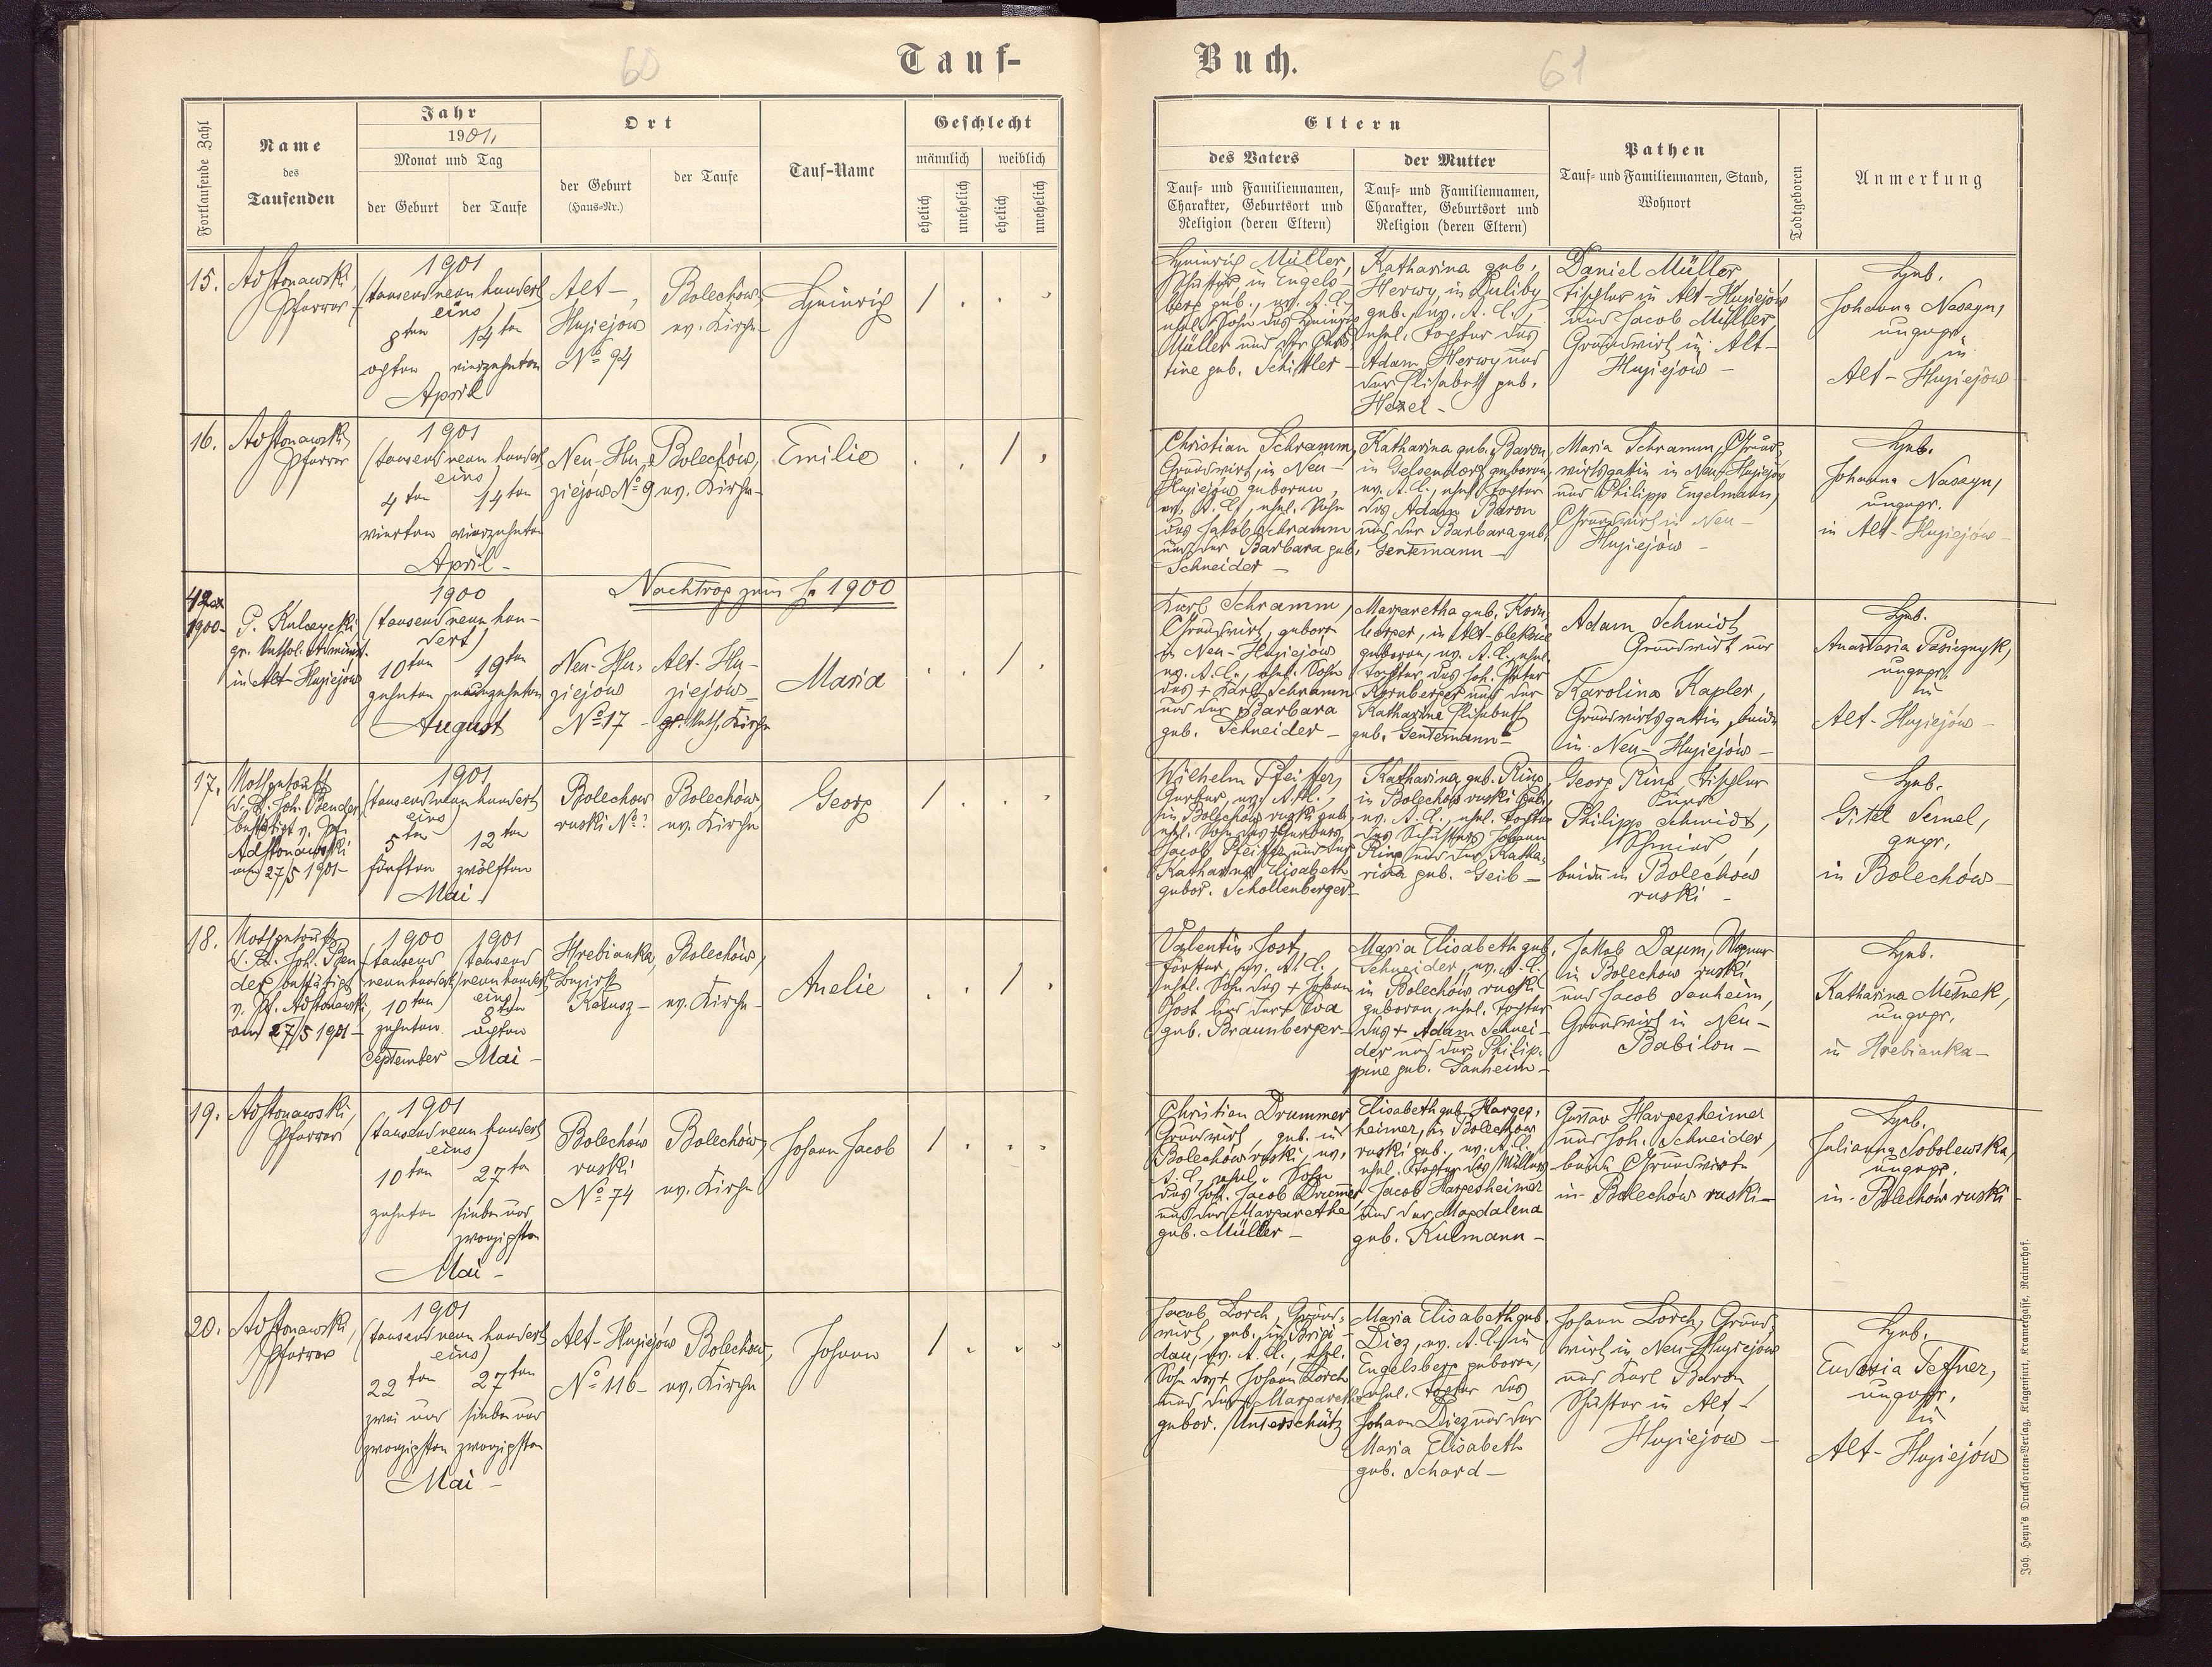 60
Tauf-
Fortlaufende Zahl
Name
des
Taufenden
Jahr
1901,
Monat und Tag
der Geburt
der Taufe
Ort
der Geburt
(Haus-Nr.)
der Taufe
Tauf-Name
Geschlecht
männlich
weiblich
ehelich
unehelich
ehelich
unehelich
15.
Pfarrer
1901
(tausend neun hundert
eins)
8ten
14ten
achten
vierzehnten
April
Alt-
Huziejow
No 94
Bolechów,
ev. Kirche
Heinrich
16.
Pfarrer
1901
(tausend neun hundert
eins)
4ten
14ten
vierten
vierzehnten
April -
Neu-Hu-
ziejów No 9
Bolechów,
ev. Kirche -
Emilie
42 ex
1900-
in Alt-Huziejów
1900
(tausend neun hun-
dert)
10ten
19ten
zehnten
neunzehnten
August
Nachtrag zum J. 1900
Neu-Hu-
ziejów
No 17 -
Alt-Hu-
ziejów -
gr. kath. Kirche
Maria
17.
Nothgetauft
v. L. Joh. Bender
bestätigt v. Pf.
am 27/5 1901-
1901
(tausend neun hundert
eins)
5ten
12ten
fünften
zwölften
Mai -
Bolechow
ruski No ?
Bolechów,
ev. Kirche
Georg
18.
Nothgetauft
v. L. Joh. Ben-
der bestätigt
am 27/5 1901-
1900
(tausend
neunhundert)
10ten
zehnten
September
1901
(tausend
neun hundert
eins)
8ten
achten
Mai -
Hrebianka,
Bezirk
Kalusz -
Bolechów,
ev. Kirche -
Amelie
19.
Pfarrer
1901
(tausend neun hundert
eins)
10ten
27ten
zehnten
sieben und
zwanzigsten
Mai -
Bolechów
ruski
No 74
Bolechów,
ev. Kirche
Johann Jacob
20.
Pfarrer
1901
(tausend neun hundert
eins)
22ten
27ten
zwei und
sieben und
zwanzigsten
zwanzigsten
Mai -
Alt-Huziejów
No 116 -
Bolechów,
ev. Kirche
Johann
Buch.
61
Eltern
des Vaters
Tauf- und Familiennamen,
Charakter, Geburtsort und
Religion (deren Eltern)
der Mutter
Tauf- und Familiennamen,
Charakter, Geburtsort und
Religion (deren Eltern)
Pathen
Tauf- und Familiennamen, Stand,
Wohnort
Todtgeboren
Anmerkung
Heinrich Müller,
Schuster, in Engels-
berg geb., ev. A. C.
ehel. Sohn des Heinrich
Müller und der
tine geb. Schittler -
Katharina geb.
Herwy, in
geb., ev. A. C.,
ehel. Tochter des
Adam Herwy und
der Elisabeth geb.
Hexel -
Daniel Müller
Tischler in Alt-Huziejów
und Jacob Müller
Grundwirt in Alt-
Huziejów -
Heb.
Johanna Nasayn,
ungepr.
in
Alt-Huziejów
Christian Schramm,
Grundwirt, in Neu-
Huziejów geboren,
ev. A. C., ehel. Sohn
des Jakob Schramm
und der Barbara geb.
Schneider -
Katharina geb. Baron,
in Gelsendorf geboren,
ev. A. C., ehel. Tochter
des Adam Baron
und der Barbara geb.
Gentemann -
Maria Schramm, Grund-
wirtsgattin in Neu-Huziejów
und Philipp Engelmann,
Grundwirt in Neu-
Huziejów -
Heb.
Johanna Nasayn,
ungepr.
in Alt-Huziejów -
Karl Schramm,
Grundwirt, geboren
in Neu-Huziejów
ev. A. C., ehel. Sohn
des + Karl Schramm
und der Barbara
geb. Schneider -
Margaretha geb. Korn-
berger, in
geboren, ev. A. C., ehel.
Tochter des Joh. Peter
Kornberger und der
Katharina Elisabeth
geb. Gentemann -
Adam Schmidt,
Grundwirt und
Karolina Kapler,
Grundwirtsgattin, beide
in Neu-Huziejów -
Heb.
Anastasia Pasicznyk,
ungepr.
in
Alt-Huziejów -
Wilhelm Pfeiffer,
Gerber, ev. A. C.,
in Bolechów ruski geb.,
ehel. Sohn des Gerbers
Jacob Pfeiffer und der
Katharina Elisabeth
gebor. Schollenberger -
Katharina geb. Ring
in Bolechów ruski geb.
ev. A. C., ehel. Tochter
des Schusters Johann
Ring und der Katha-
rina geb. Geib -
Georg Ring, Tischler
und
Philipp Schmidt,
Schmied,
beide in Bolechów
ruski -
Heb.
Gittel Semel,
gepr.,
in Bolechów -
Valentin Jost,
Förster, ev. A. C.,
ehel. Sohn des + Johann
Jost und der + Eva
geb. Braunberger -
Maria Elisabeth geb.
Schneider, ev. A. C.
in Bolechów ruski
geboren, ehel. Tochter
des + Adam Schnei-
der und der Philip-
pine geb. Sanheim -
Jakob Daum, Wagner
in Bolechow ruski
und Jacob Sanheim,
Grundwirt in Neu-
Babilon -
Heb.
Katharina Mesnek,
ungepr.
in Hrebianka -
Christian Drummer
Grundwirt, geb. in
Bolechów ruski, ev.
A. C., ehel. Sohn
des Joh. Jacob Drummer
und der Margarethe
geb. Müller -
Elisabeth geb. Harges-
heimer, in Bolechów
ruski geb., ev. A. C.
ehel. Tochter des Müllers
Jacob Hargesheimer
und der Magdalena
geb. Kulmann -
Gustav Hargesheimer
und Joh. Schneider,
beide Grundwirte
in Bolechów ruski -
Heb.
Julianna Sobolewska,
ungepr.
in Bolechów ruski -
Jacob Lorch, Grund-
wirt, geb. in Brigi-
dau, ev. A. C., ehel.
Sohn des + Johann Lorch
und der + Margarethe
gebor. Unterschütz
Maria Elisabeth geb.
Diez, ev. A. C., in
Engelsberg geboren,
ehel. Tochter des
Johann Diez und der
Maria Elisabeth
geb. Schard -
Johann Lorch, Grund-
wirt in Neu-Huziejów
und Karl Baron
Schuster in Alt-
Huziejów -
Heb.
ungepr.
in
Alt-Huziejów
Joh. Heyn's Drucksorten-Verlag, Klagenfurt, Kramergasse, Rainerhof.